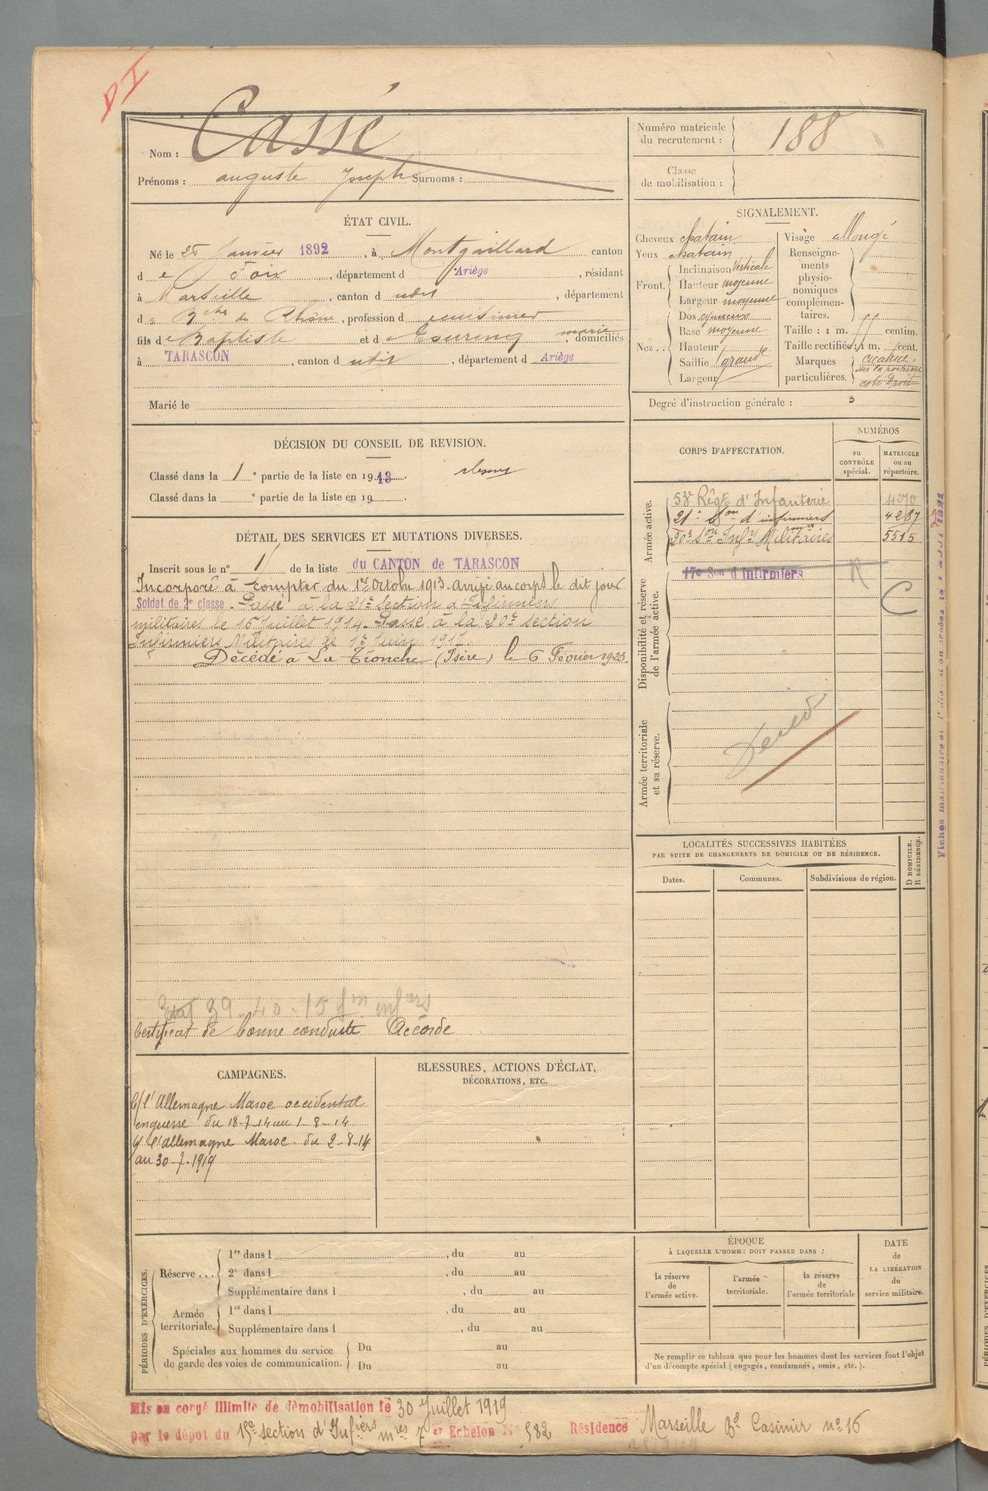 Nom : Cassé
Prénoms : auguste Joseph Surnoms :
Numéro matricule du recrutement : 188
Classe de mobilisation :
ÉTAT CIVIL.
Né le 25 Janvier 1892, à Montgaillard canton
de Foix, département d Ariège, résidant
à Marseille, canton d udit, département
d es Bches du Rhône, profession de cuisinier
fils de Baptiste et de marie, domiciliés
à TARASCON, canton d udit, département d Ariège
Marié le
SIGNALEMENT.
Cheveux chatain
Yeux chatain
Front. Inclinaison Verticale
Hauteur moyenne
Largeur moyenne
Nez. Dos
Base moyenne
Hauteur
Saillie grande
Largeur
Visage allongé
Renseignements physionomiques complémentaires.
Taille : 1 m. centim.
Taille rectifiée : 1 m. cent.
Marques particulières. cicatrice sur la poitrine coté droit
Degré d'instruction générale : 3
DÉCISION DU CONSEIL DE REVISION.
Classé dans la 1e partie de la liste en 1913.
Classé dans la e partie de la liste en 19
DÉTAIL DES SERVICES ET MUTATIONS DIVERSES.
Inscrit sous le n° 1 de la liste du CANTON de TARASCON
Incorporé à compter du 1er Octobre 1913. arrivé au corps le dit jour
Soldat de 2e classe. Passé à la 21e Section d'Infirmiers
militaires le 16 Juillet 1914. Passé à la 20e section
Infirmiers Militaires le 1er Juin 1917.
Décédé à La Tronche (Isère) le 6 Février 1923.
39-40-15 Son infers
Certificat de bonne conduite Accordé
CORPS D'AFFECTATION.
NUMÉROS
au CONTRÔLE spécial.
MATRICULE ou au répertoire.
Armée active.
53e Régt d'Infanterie 4370
21e Son d'infirmiers 4287
20e Son Infrs Militaires 5515
Disponibilité et réserve de l'armée active.
17e Son d'Infirmiers R
C
Armée territoriale et sa réserve.
Décédé
LOCALITÉS SUCCESSIVES HABITÉES
PAR SUITE DE CHANGEMENTS DE DOMICILE OU DE RÉSIDENCE.
Dates. Communes. Subdivisions de région. D DOMICILE. R RÉSIDENCE.
CAMPAGNES.
C/ l'Allemagne Maroc occidental
en guerre du 18-7-14 au 1-8-14
C/ l'allemagne Maroc du 2-8-14
au 30-7-1919
BLESSURES, ACTIONS D'ÉCLAT,
DÉCORATIONS, ETC.
PÉRIODES D'EXERCICES.
Réserve... 1re dans l , du au
2e dans l , du au
Supplémentaire dans l , du au
Armée territoriale. 1re dans l , du au
Supplémentaire dans l , du au
Spéciales aux hommes du service de garde des voies de communication. Du au
Du au
ÉPOQUE
À LAQUELLE L'HOMME DOIT PASSER DANS :
la réserve de l'armée active.
l'armée territoriale.
la réserve de l'armée territoriale
DATE de LA LIBÉRATION du service militaire.
Ne remplir ce tableau que pour les hommes dont les services font l'objet
d'un décompte spécial (engagés, condamnés, omis, etc.).
Mis en congé illimité de démobilisation le 30 Juillet 1919
par le dépôt du 15e section d'Infiers mres 7er Echelon N° 582 Résidence Marseille Bd Casimir n° 16